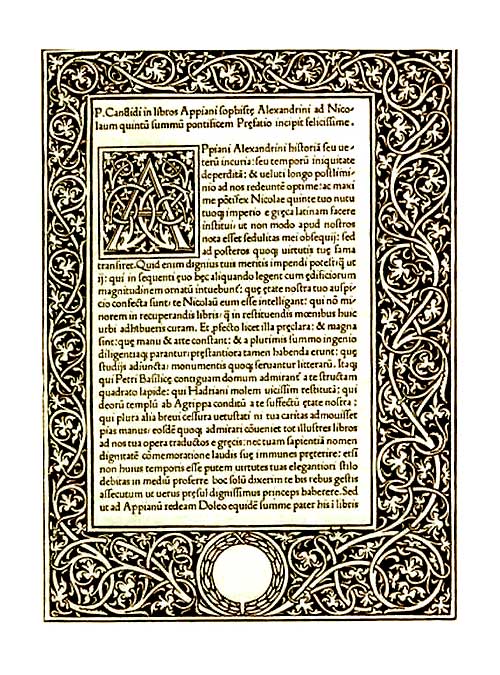 P. Candidi in libros Appiani sophistę Alexandrini ad Nico-
laum quintū summū pontificem Pręfatio incipit felicissime.
APpiani Alexandrini historiā seu ue-
terū incuria: seu temporū iniquitate
deperditā: & ueluti longo postlimi-
nio ad nos redeuntē optime: ac maxi
me pōtifex Nicolae quinte tuo nutu
tuoq; imperio e gręca latinam facere
institui: ut non modo apud nostros
nota esset sedulitas mei obsequij: sed
ad posteros quoq; uirtutis tuę fama
transiret. Quid enim dignius tuis meritis impendi potest: q̄ ut
ij: qui in sequenti ęuo hęc aliquando legent cum ędificiorum
magnitudinem ornatū intuebunt: quę ętate nostra tuo auspi-
cio confecta sunt: te Nicolaū eum esse intelligant: qui nō mi-
norem in recuperandis libris: q̄ in restituendis mœnibus huic
urbi adhibueris curam. Et ꝓfecto licet illa pręclara: & magna
sint: quę manu & arte constant: & a plurimis summo ingenio
diligentiaq; parantur: pręstantiora tamen habenda erunt: quę
studijs adiuncta: monumentis quoq; seruantur litterarū. Itaq;
qui Petri Basilicę contiguam domum admirant a te structam
quadrato lapide: qui Hadriani molem uicissim restitutā: qui
deorū templū ab Agrippa conditū a te suffectū ętate nostra:
qui plura alia breui cessura uetustati ni tua caritas admouisset
pias manus: eosdē quoq; admirari cōueniet tot illustres libros
ad nos tua opera traductos e gręcis: nec tuam sapientiā nomen
dignitatē cōmemoratione laudis suę immunes pręterire: etsi
non huius temporis esse putem uirtutes tuas elegantiori stilo
debitas in mediū proferre hoc solū dixerim te bis rebus gestis
assecutum ut uerus pręsul dignissimus princeps haberere. Sed
ut ad Appianū redeam Doleo equidē summe pater his i libris